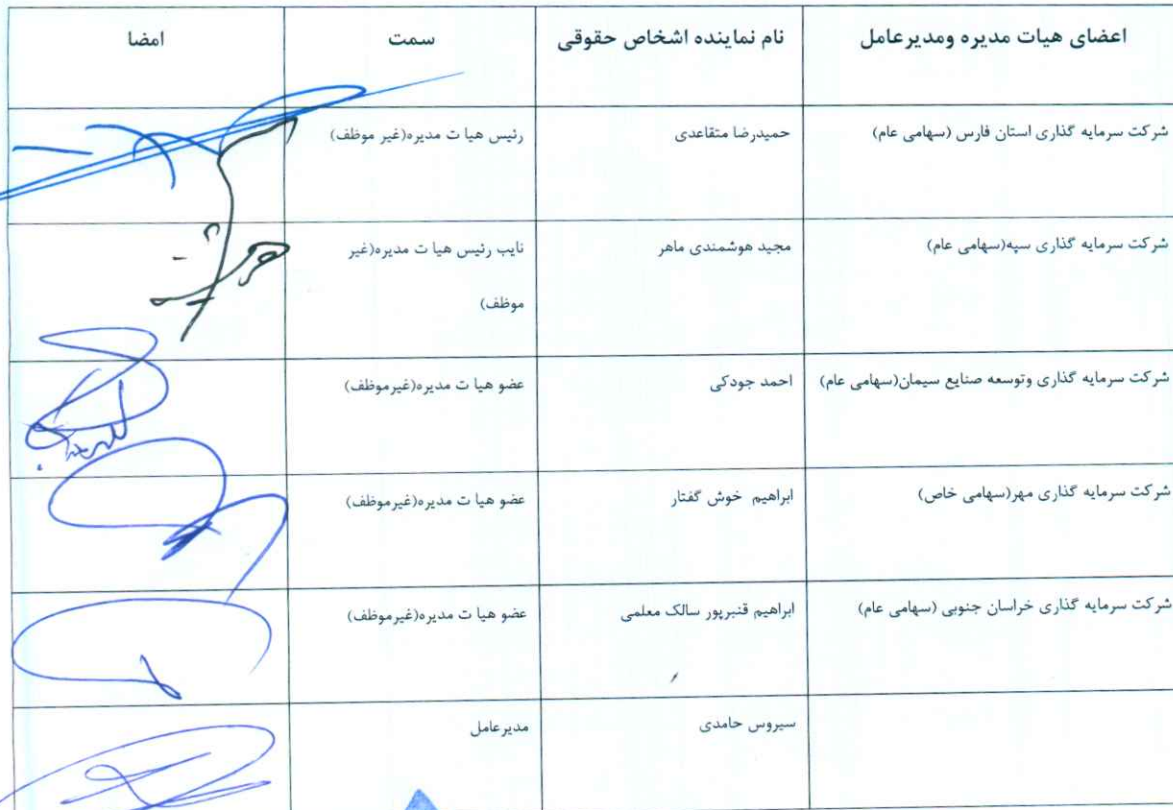 اعضای هیات مدیره ومدیرعامل
نام نماینده اشخاص حقوقی
سمت
امضا
شرکت سرمایه گذاری استان فارس (سهامی عام)
حمیدرضا متقاعدی
رئیس هیا ت مدیره(غیر موظف)
شرکت سرمایه گذاری سپه(سهامی عام)
مجید هوشمندی ماهر
نایب رئیس هیا ت مدیره(غیر
موظف)
شرکت سرمایه گذاری وتوسعه صنایع سیمان(سهامی عام)
احمد جودکی
عضو هیا ت مدیره(غیرموظف)
شرکت سرمایه گذاری مهر(سهامی خاص)
ابراهیم خوش گفتار
عضو هیا ت مدیره(غیرموظف)
شرکت سرمایه گذاری خراسان جنوبی (سهامی عام)
ابراهیم قنبرپور سالک معلمی
عضو هیا ت مدیره(غیرموظف)
سیروس حامدی
مدیرعامل